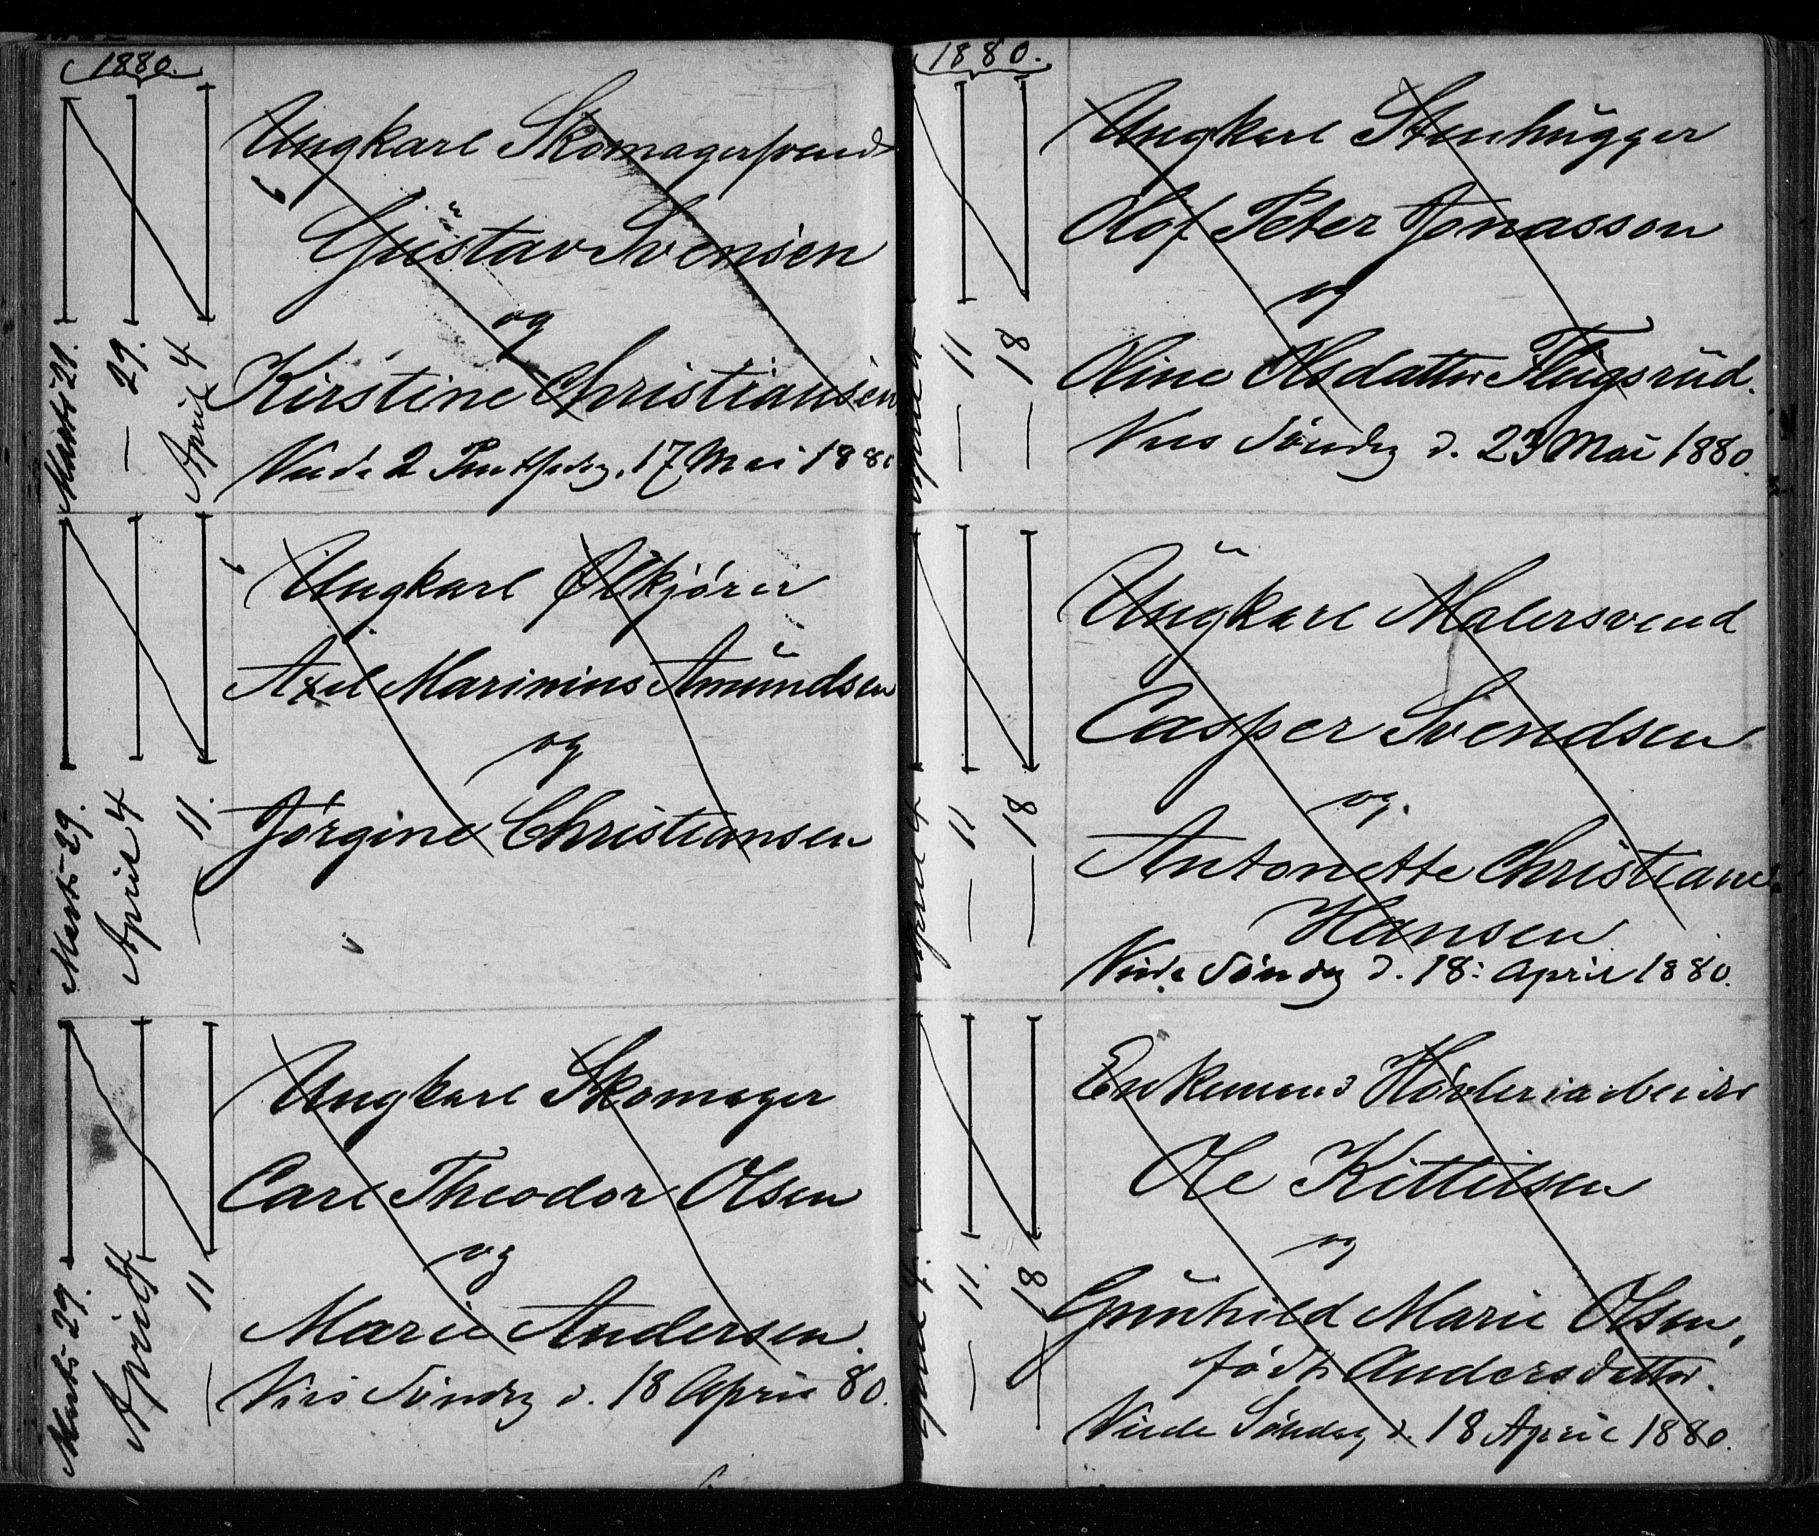 1880.
Ungkarl Skomagersvend
Gustav Svensen
og
Kirstine Christiansen
Viede 2 Pintsedag, 17 Mai 1880
Marts 28.
— 29.
April 4
Ungkarl Ølkjører
Axel Marinius Amundsen
og
Jørgine Christiansen
Marts 29.
April 4
— 11.
Ungkarl Skomager
Carl Theodor Olsen
og
Marie Andersen.
Vies Søndag d. 18 April 80.
Marts 29.
April 4
— 11
1880.
Ungkarl Stenhugger
Olof Peter Jonasson
og
Oline Olsdatter Flugsrud.
Vies Søndag d. 23 Mai 1880.
April 4
— 11
— 18
Ungkarl Malersvend
Casper Svendsen
og.
Antonette Christiane
Hansen
Viede Søndag d. 18: April 1880.
April 4
— 11
— 18
Enkemand Høvleriarbeider
Ole Kittilsen
og
Gunhild Marie Olsen,
født Andersdatter.
Viede Søndag d. 18 April 1880.
April 4.
— 11.
— 18